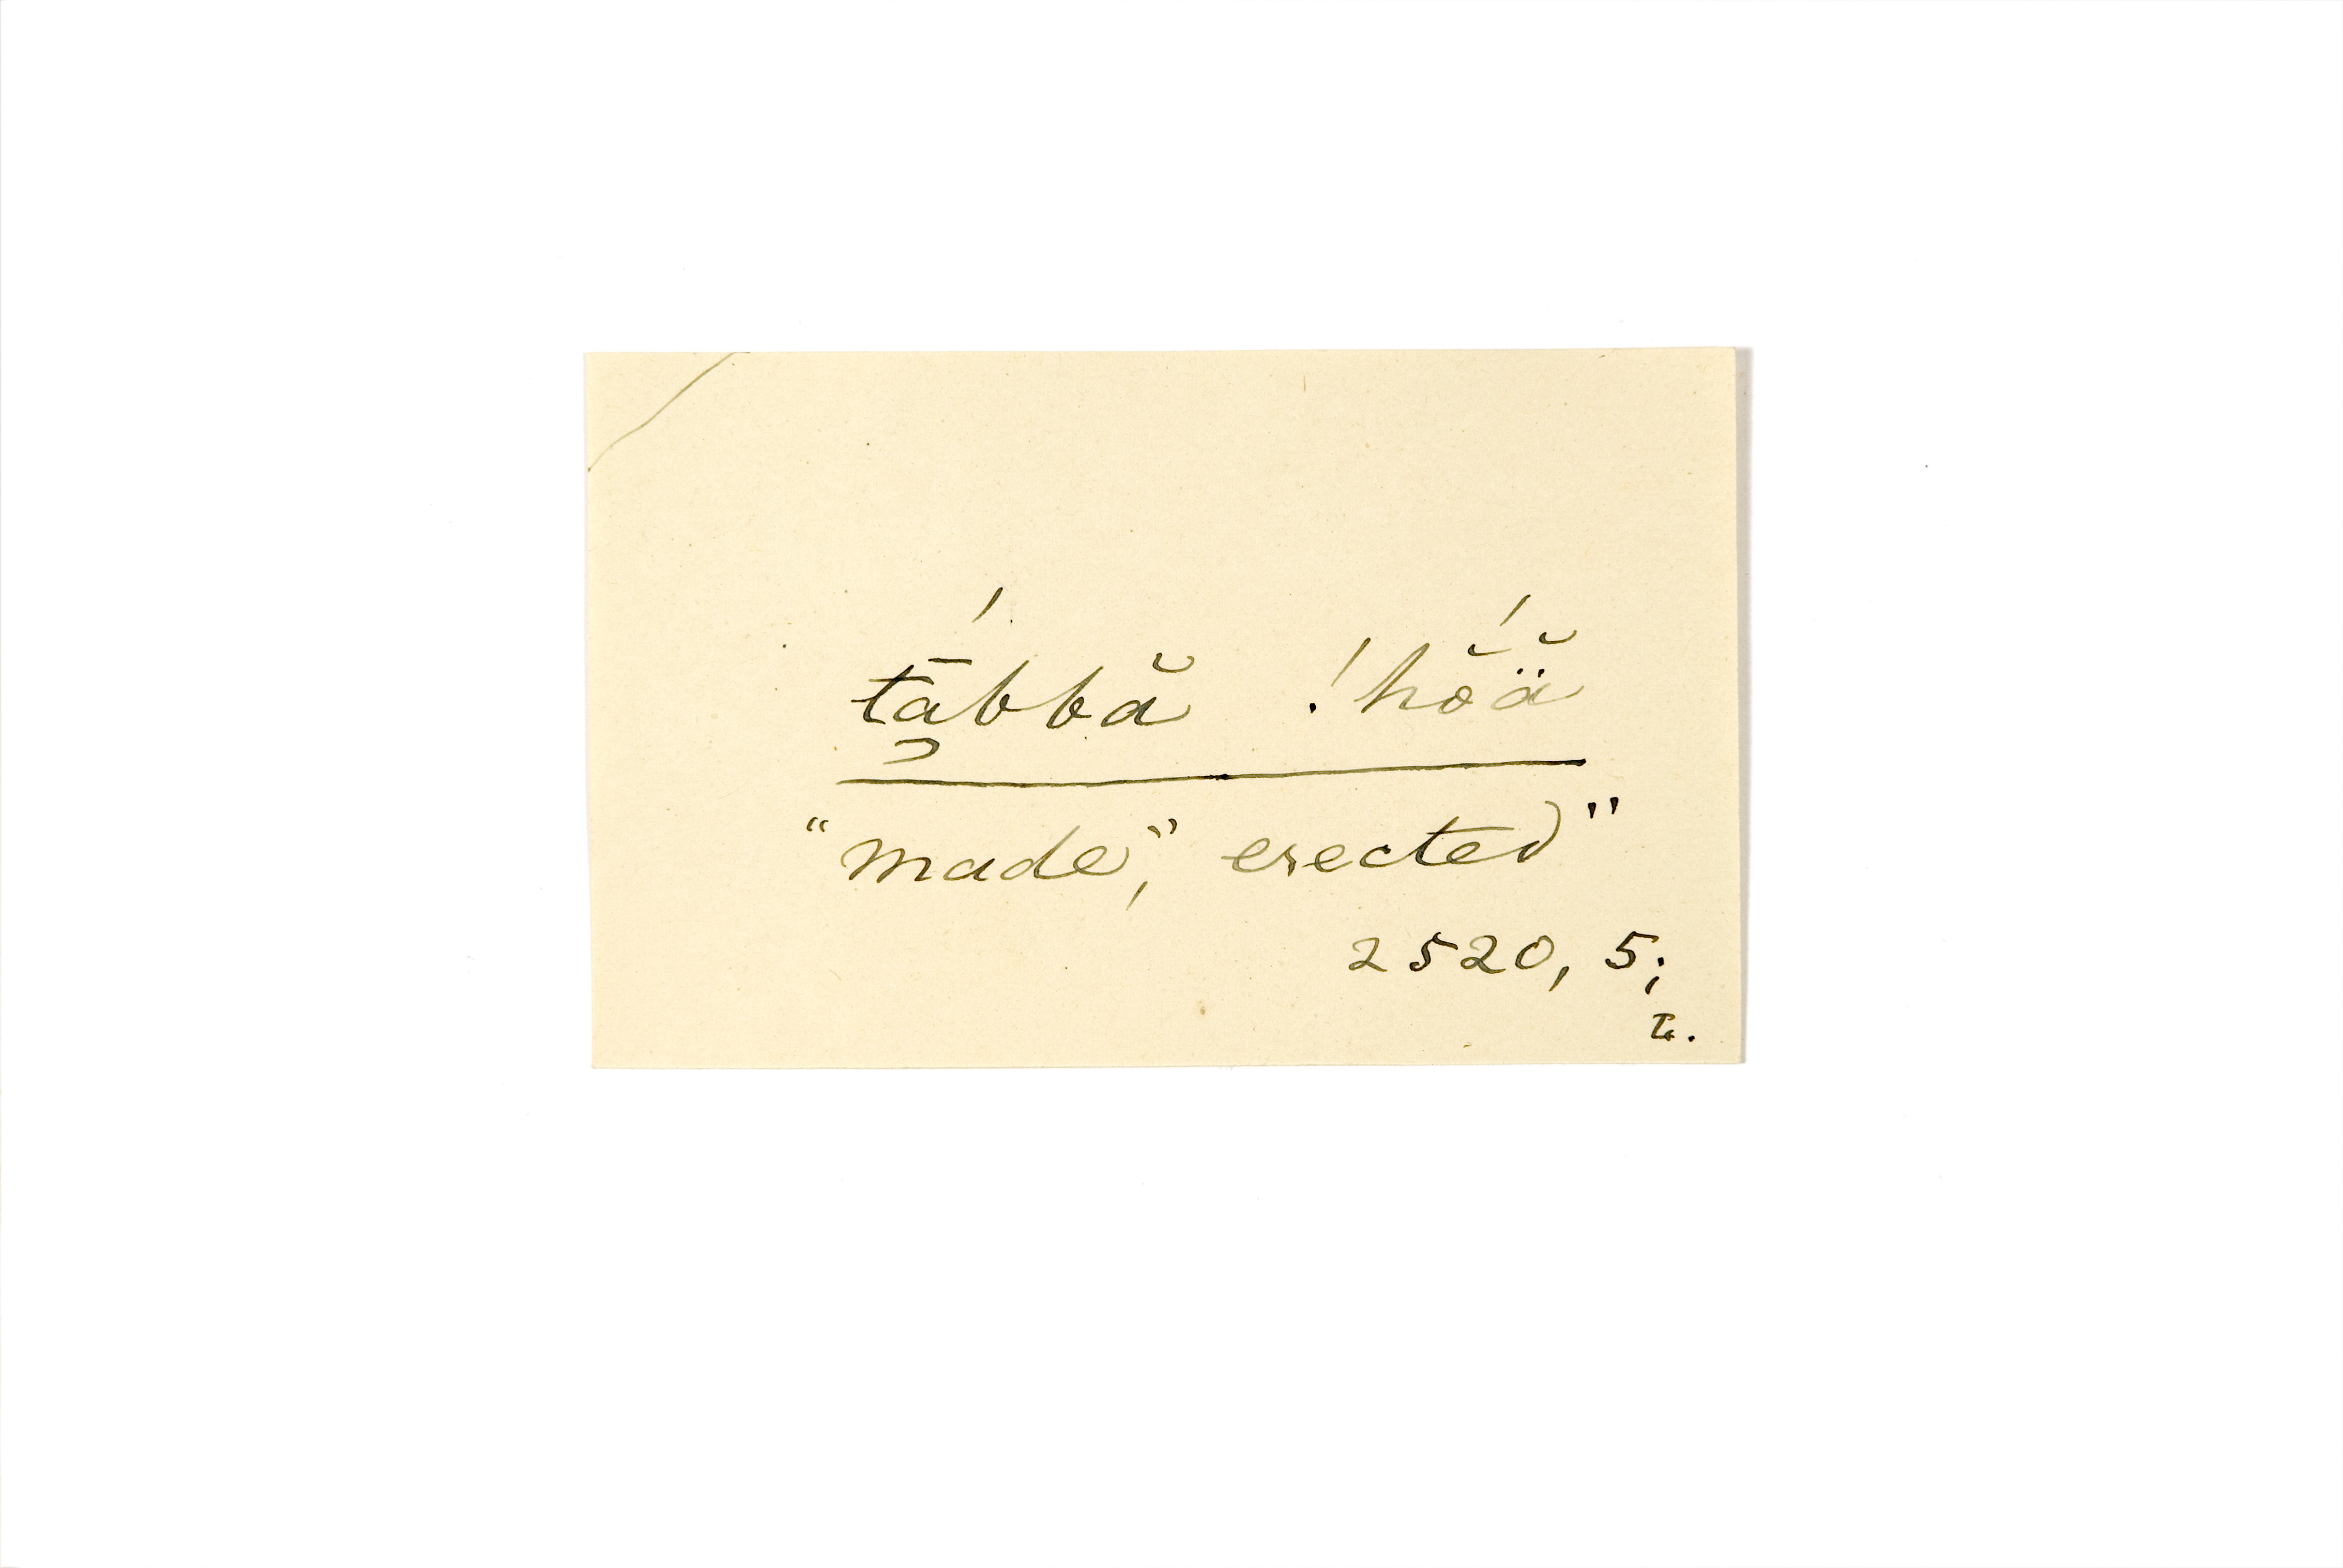 tā̗́bbă !hŏ́ä̆
"made", erected"
2520, 5;